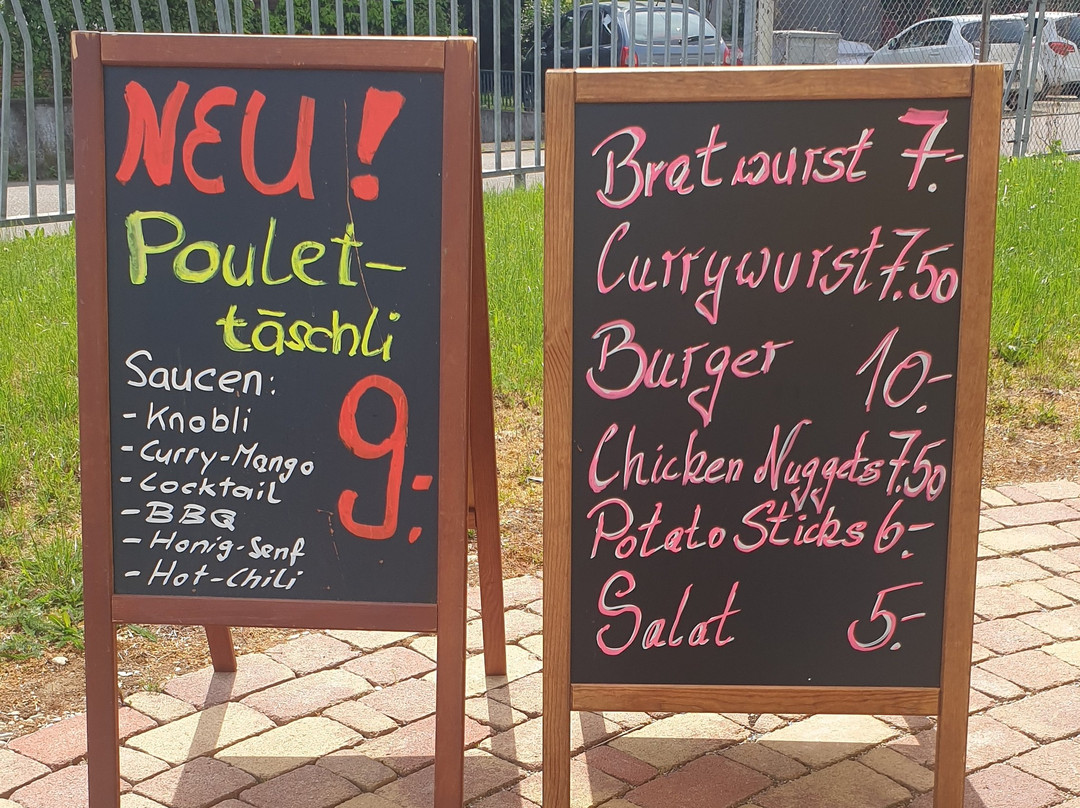 NEU!
Poulet-
täschli
Saucen:
- Knobli
- Curry-Mango
- Cocktail
- BBQ
- Honig-Senf
- Hot-Chili
9.-
Bratwurst 7.-
Currywurst 7.50
Burger 10.-
Chicken Nuggets 7.50
Potato Sticks 6.-
Salat 5.-